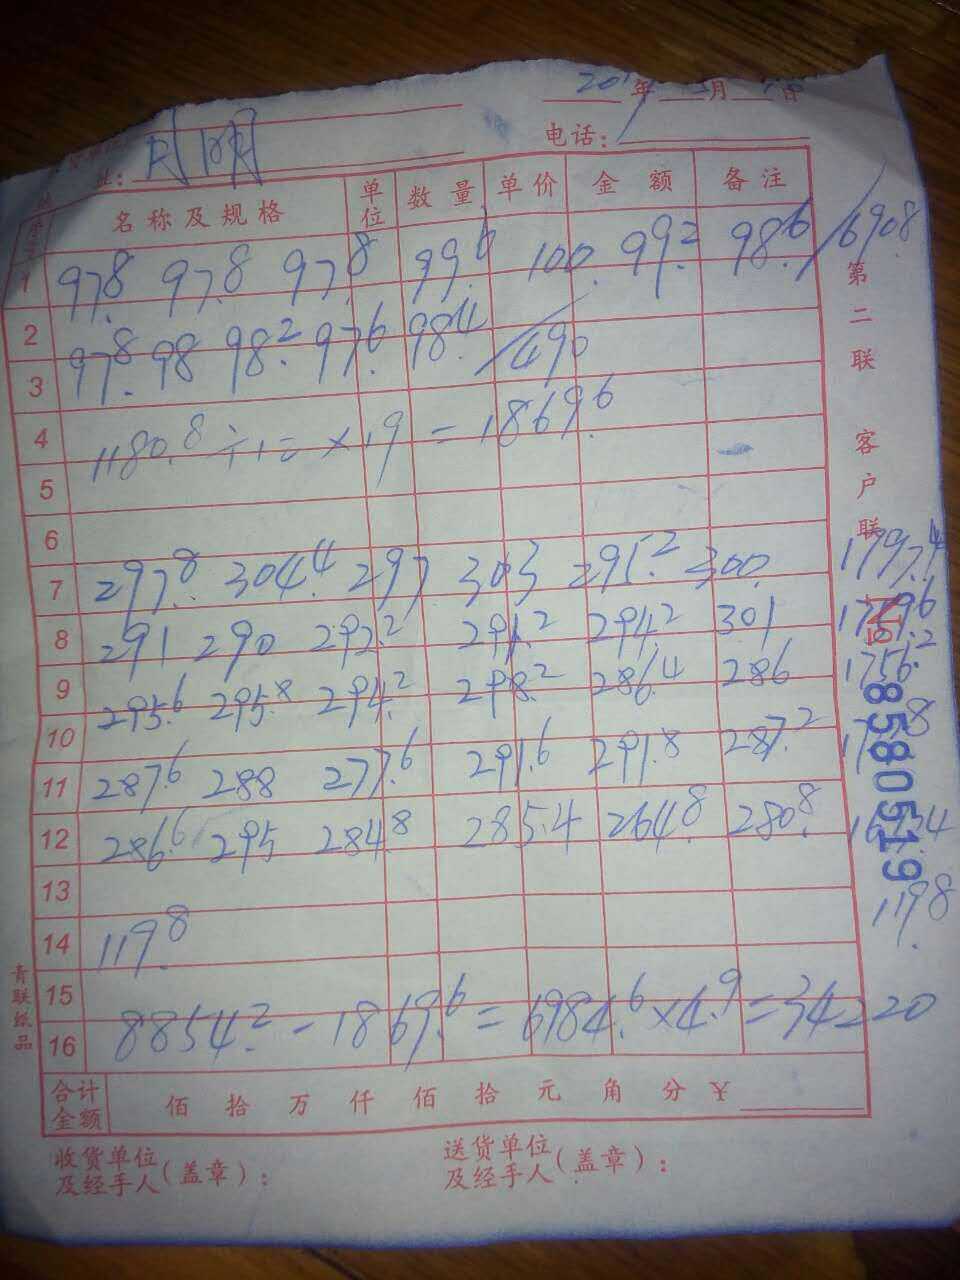 20 年 月 日
址: 电话:
名称及规格 单位 数量 单价 金额 备注
1 97.8 97.8 97.8 99.6 100. 99.2 98.6 / 690.8
2
3 97.8 98 98.2 97.6 98.4 / 490
4 1180.8 ÷12 × 19 = 1869.6
5
6
7 297.8 304.4 297 303 295.2 300. 1797.4
8 291 290 292.2 291.2 294.2 301 1759.6
9 295.6 295.8 294.2 298.2 286.4 286 1756.2
10
11 287.6 288 277.6 291.6 291.8 287.2
12 286.6 295 284.8 285.4 264.8 280.8
13
14 119.8 119.8
15
16 8854.2 - 1869.6 = 6984.6 × 4.9 = 34220
合计金额 佰 拾 万 仟 佰 拾 元 角 分 ¥
收货单位及经手人(盖章): 送货单位及经手人(盖章):
第二联 客户联
8580519
青联纸品